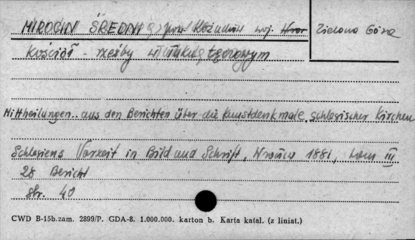 MIROCIN ŚREDNI g. pow. Kożuchów woj. Wroc Zielona Góra
Kościół - rzeźby w ołtarzu
Mittheilungen.. aus den Berichten über die Kunstdenkmale schlesischer Kirchen
Schlesiens Vorzeit in Bild und Schrift, 1881, tom III
28 Bericht
str. 40
CWD B-15b. zam. 2899/P. GDA-8. 1.000.000. karton b. Karta katal. (z liniat.)